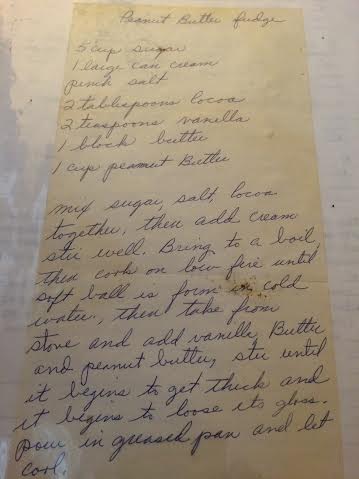 Peanut Butter fudge
5 cup sugar
1 large can cream
pinch salt
2 tablespoons cocoa
2 teaspoons vanilla
1 block butter
1 cup peanut Butter
mix sugar, salt, cocoa
together, then add cream
stir well. Bring to a boil,
then cook on low fire until
soft ball is form in cold
water., then take from
stove and add vanilla, Butter
and peanut butter, stir until
it begins to get thick and
it begins to loose its gloss.
pour in greased pan and let
cool.